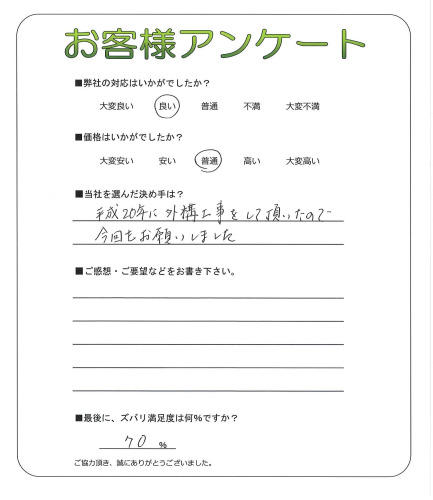 お客様アンケート
■弊社の対応はいかがでしたか？
大変良い 良い 普通 不満 大変不満
■価格はいかがでしたか？
大変安い 安い 普通 高い 大変高い
■当社を選んだ決め手は？
平成20年に外構工事をして頂いたので
今回もお願いしました
■ご感想・ご要望などをお書き下さい。
■最後に、ズバリ満足度は何%ですか？
70 %
ご協力頂き、誠にありがとうございました。